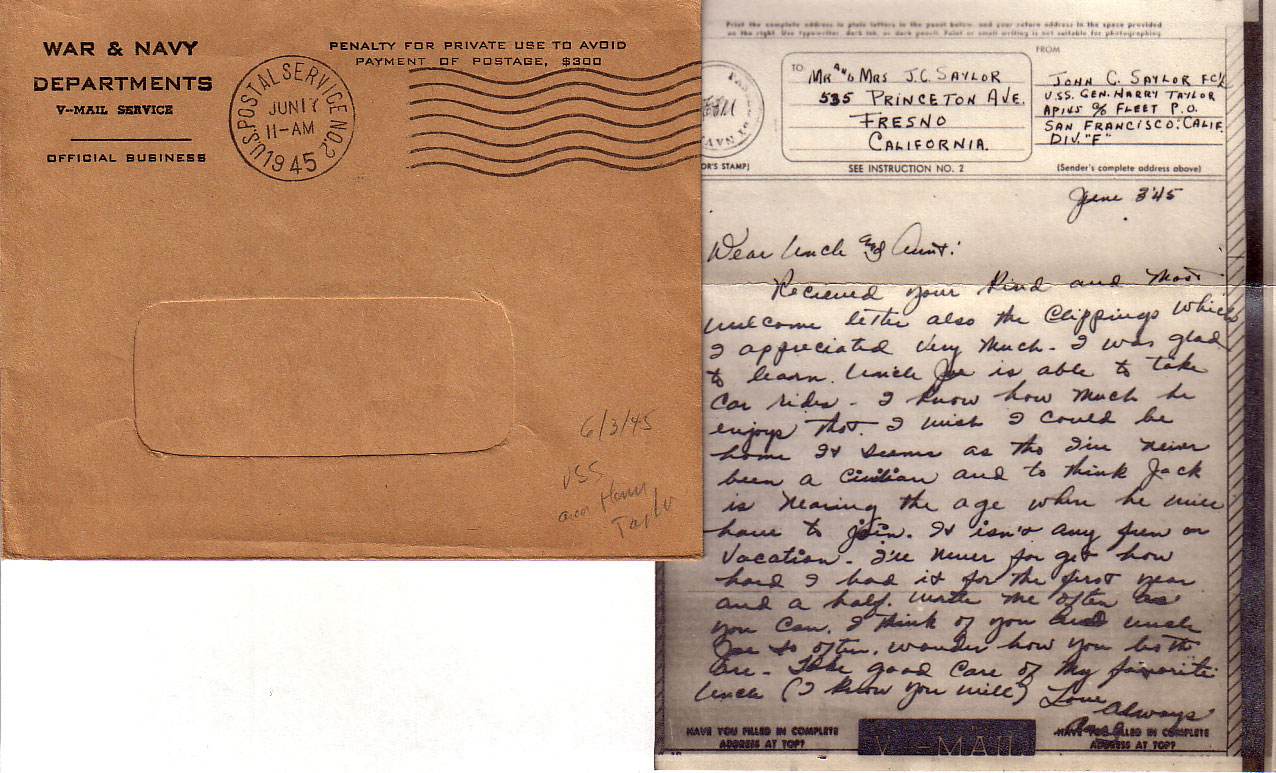 WAR & NAVY
DEPARTMENTS
V--MAIL SERVICE
OFFICIAL BUSINESS
U.S. POSTAL SERVICE NO. 2
JUN 17
11-AM
1945
PENALTY FOR PRIVATE USE TO AVOID
PAYMENT OF POSTAGE, $300
6/3/45
USS
Taylor
Print the complete address in plain letters in the panel below, and your return address in the space provided
on the right. Use typewriter, dark ink, or dark pencil. Faint or small writing is not suitable for photographing.
TO
MR AND MRS J.C. SAYLOR
535 PRINCETON AVE.
FRESNO
CALIFORNIA.
FROM
JOHN C. SAYLOR
U.S.S. GEN. HARRY TAYLOR
AP145 C/o FLEET P.O.
SAN FRANCISCO: CALIF.
DIV. "F"
OR'S STAMP)
SEE INSTRUCTION NO. 2
(Sender's complete address above)
June 3 '45
Dear Uncle and Aunt:
Recieved your kind and most
welcome letter also the clippings which
I appreciated very much - I was glad
to learn Uncle Joe is able to take
car rides - I know how much he
enjoys that. I wish I could be
home It seems as tho I've never
been a civilian and to think Jack
is nearing the age when he will
have to join. It isn't any fun or
vacation. I'll never forget how
hard I had it for the first year
and a half. Write me often as
you can. I think of you and Uncle
Joe so often, wonder how you both
are - Take good care of my favorite
Uncle (I know you will) Love
Always
HAVE YOU FILLED IN COMPLETE
ADDRESS AT TOP?
V--MAIL
HAVE YOU FILLED IN COMPLETE
ADDRESS AT TOP?